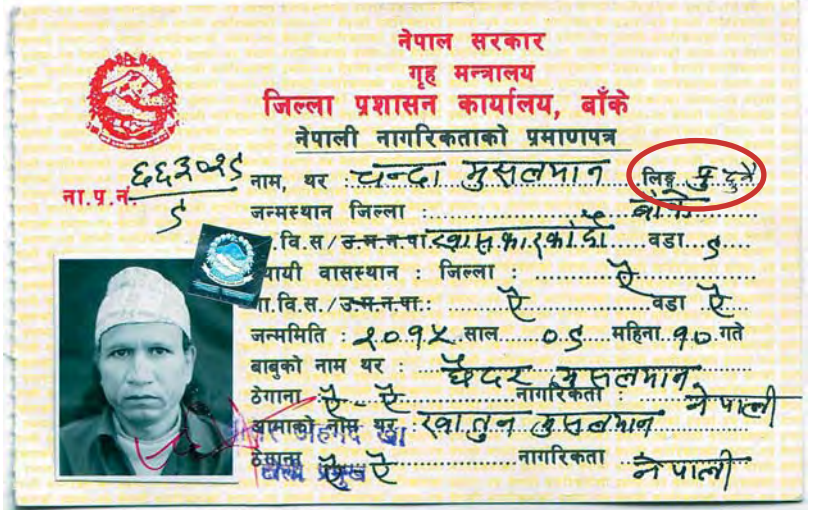 नेपाल सरकार
गृह मन्त्रालय
जिल्ला प्रशासन कार्यालय, बाँके
नेपाली नागरिकताको प्रमाणपत्र
ना.प्र.नं. ६६३०२९/९ नाम, थर : चन्दा मुसलमान लिङ्ग
जन्मस्थान जिल्ला : बाँके
.वि.स/उ.म.न.पा वडा ९
थायी वासस्थान : जिल्ला : ऐ
गा.वि.स./उ.म.न.पा.: ऐ वडा ऐ
जन्ममिति : २०१५ साल ०९ महिना १० गते
बाबुको नाम थर : मुसलमान
ठेगाना : ऐ - ऐ नागरिकता : नेपाली
आमाको नाम थर : खातुन मुसलमान
ठेगाना ऐ ऐ नागरिकता नेपाली